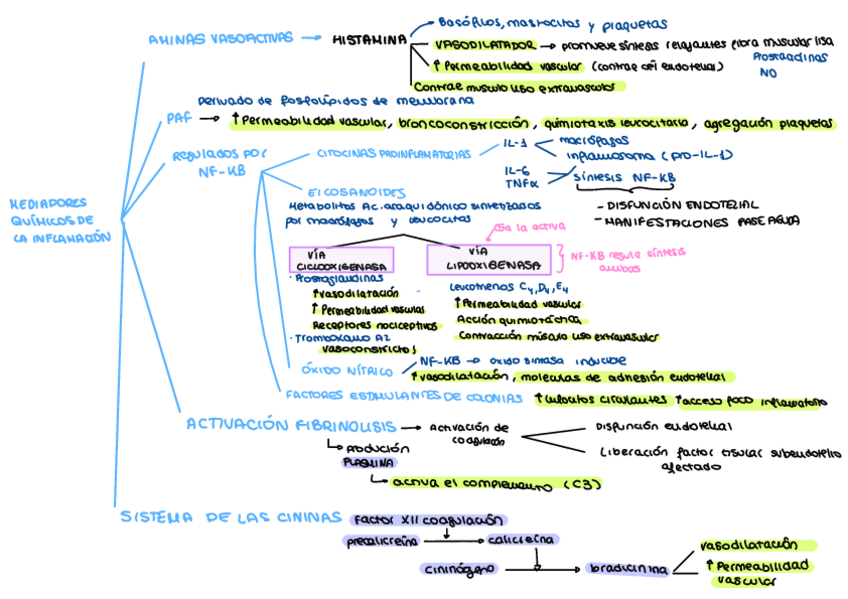 MEDIADORES
QUÍMICOS DE
LA INFLAMACIÓN
AMINAS VASOACTIVAS → HISTAMINA
Basófilos, mastocitos y plaquetas
VASODILATADOR → promueve síntesis relajantes fibra muscular lisa
Prostaglandinas
NO
↑ Permeabilidad vascular (contrae cél endotelial)
Contrae músculo liso extravascular
PAF →
Derivado de fosfolípidos de membrana
↑ Permeabilidad vascular, broncoconstricción, quimiotaxis leucocitaria, agregación plaquetas
Regulados por
NF-KB
CITOCINAS PROINFLAMATORIAS
IL-1
macrófagos
inflamosoma (pro-IL-1)
IL-6
TNFα
síntesis NF-KB
- DISFUNCIÓN ENDOTELIAL
- MANIFESTACIONES FASE AGUDA
EICOSANOIDES
Metabolitos Ac. araquidónico sintetizados
por macrófagos y leucocitos
C5a la activa
VÍA
CICLOOXIGENASA
VÍA
LIPOOXIGENASA
NF-KB regula síntesis
ambos
· Prostaglandinas
↑ vasodilatación
↑ Permeabilidad vascular
Receptores nociceptivos
· Tromboxano A2
vasoconstrictor
Leucotrienos C4, D4, E4
↑ Permeabilidad vascular
Acción quimiotáctica
Contracción músculo liso extravascular
ÓXIDO NÍTRICO
NF-KB → óxido sintasa inducible
↑ vasodilatación, moléculas de adhesión endotelial
FACTORES ESTIMULANTES DE COLONIAS
↑ leucocitos circulantes ↑ acceso foco inflamatorio
ACTIVACIÓN FIBRINOLISIS →
Activación de
coagulación
Disfunción endotelial
Liberación factor tisular subendotelio
afectado
Producción
PLASMINA
activa el complemento (C3)
SISTEMA DE LAS CININAS
Factor XII coagulación
precalicreína → calicreína
cininógeno → bradicinina
vasodilatación
↑ Permeabilidad
vascular